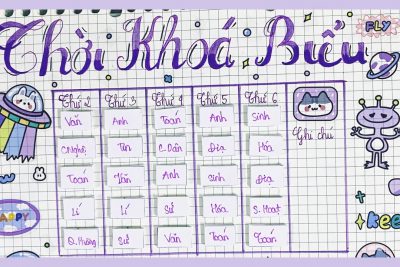 Thời Khoá Biểu
FLY
Thứ 2 Thứ 3 Thứ 4 Thứ 5 Thứ 6
Văn Anh Toán Anh Sinh
Ghi chú
C.Nghệ Tin C.Dân Địa Hóa
Toán Văn Anh Sinh Địa
Lí Lí Sử Hóa S.Hoạt
HAPPY
kee
Q.Phòng Sử Văn Toán Toán